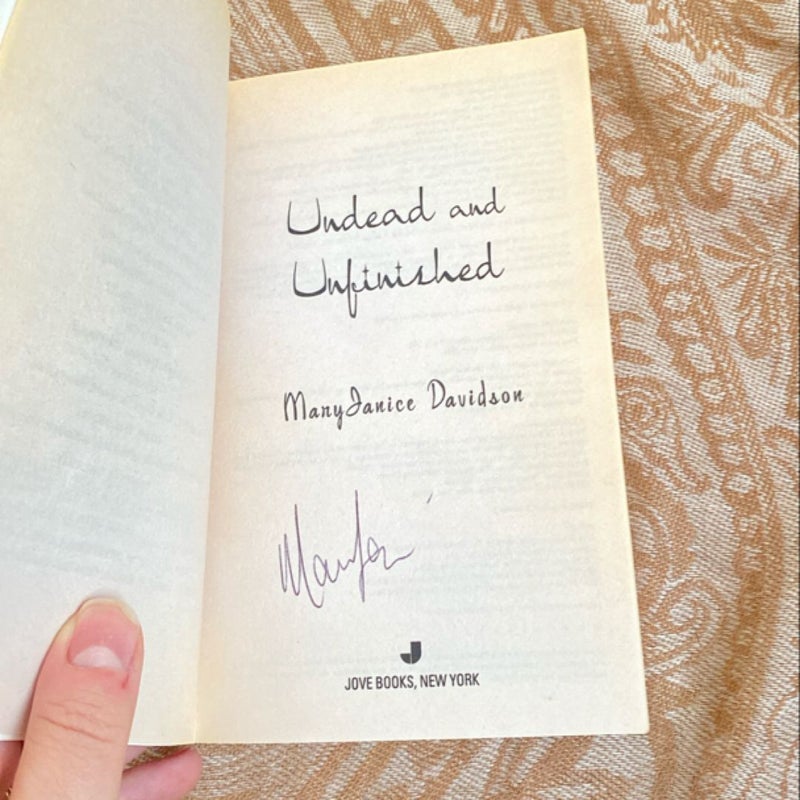 Undead and
Unfinished
MaryJanice Davidson
JOVE BOOKS, NEW YORK